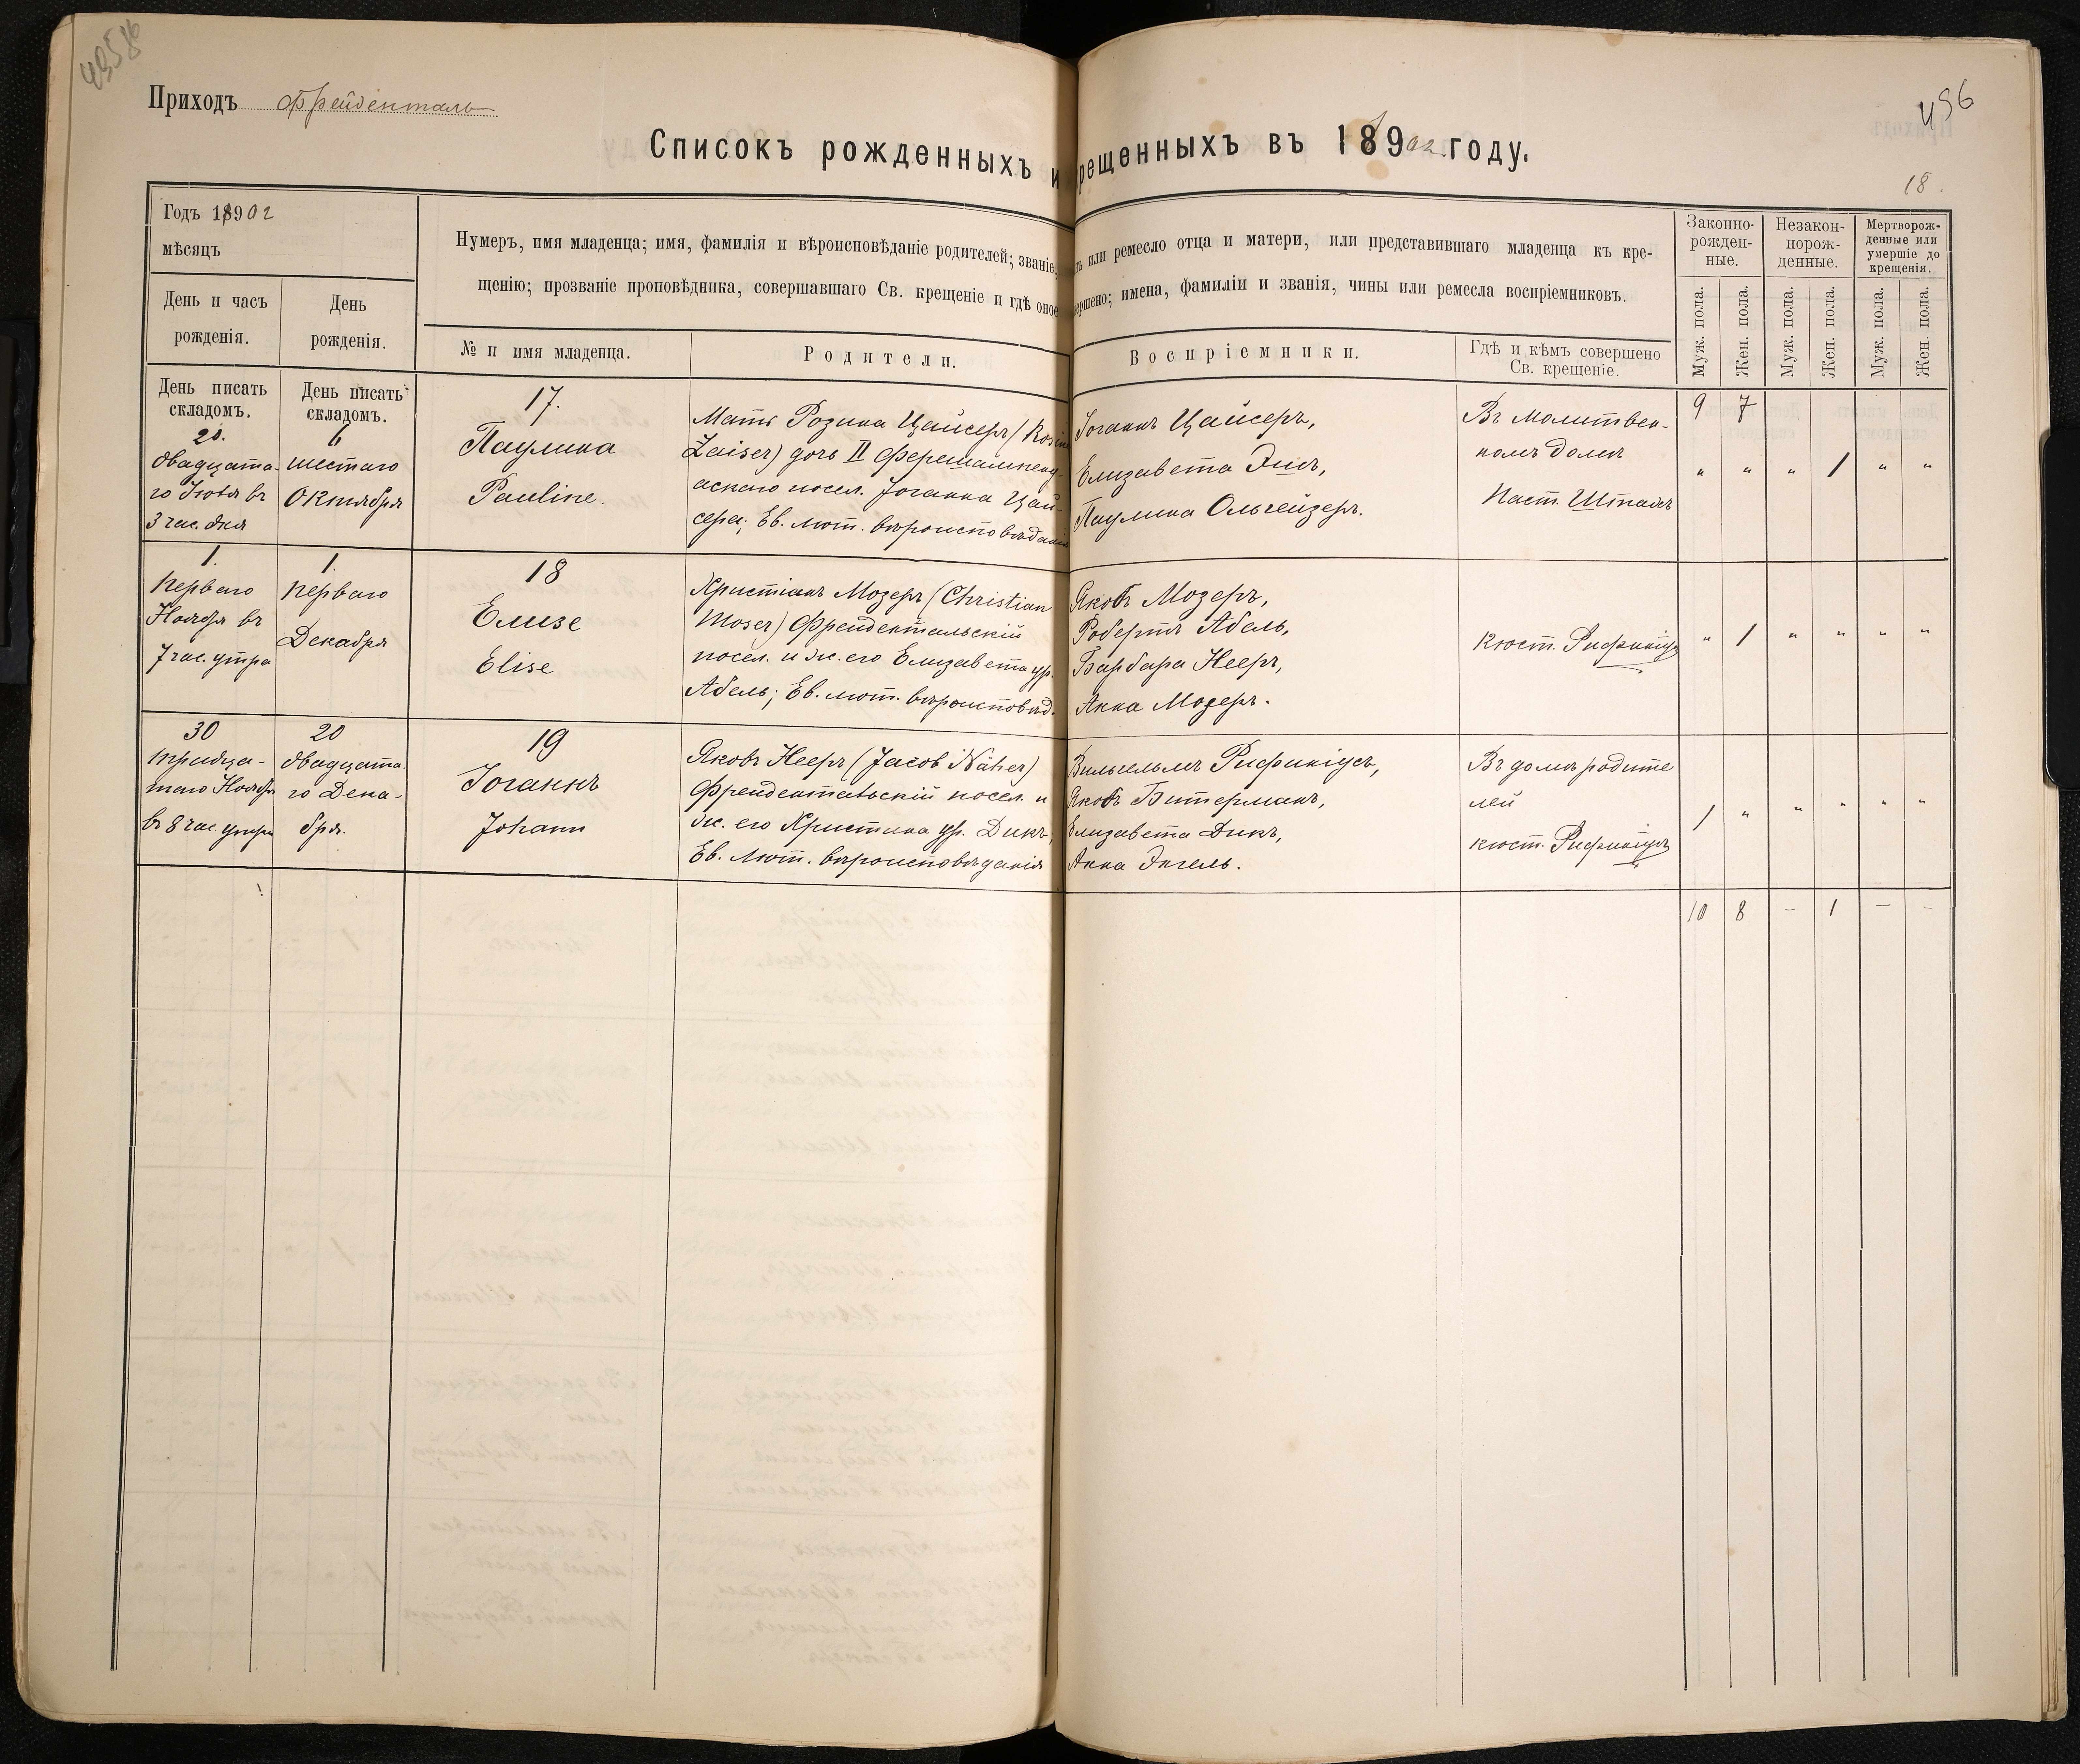 Приходъ Фрейденталь
456
Списокъ рожденныхъ и рещенныхъ въ 18902 году.
18.
Годъ 18902
мѣсяцъ
День и часъ
рожденія.
День
рожденія.
Нумеръ, имя младенца; имя, фамилія и вѣроисповѣданіе родителей; званіе, или ремесло отца и матери, или представившаго младенца къ кре-
щенію; прозваніе проповѣдника, совершавшаго Св. крещеніе и гдѣ оное ершено; имена, фамиліи и званія, чины или ремесла воспріемниковъ.
№ и имя младенца.
Родители.
Воспріемники.
Гдѣ и кѣмъ совершено
Св. крещеніе.
Законно-
рожден-
ные.
Незакон-
норож-
денные.
Мертворож-
денные или
умершіе до
крещенія.
Муж. пола.
Жен. пола.
Муж. пола.
Жен. пола.
Муж. пола.
Жен. пола.
День писать
складомъ.
20.
двадцата-
го Іюля въ
3 час. дня
День писать
складомъ.
6
шестаго
Октября
17.
Паулина
Pauline.
Мать Розина Цайсеръ (Rosin
Zaiser) дочь II Ферешампену-
аскаго посел. Іоганна Цай-
сера; Ев. лют. вѣроисповѣданія
Іоганнъ Цайсеръ,
Елизавета
Паулина Ольгейзеръ.
Въ молитвен-
номъ домѣ
Паст. Шталь
9 7
" " " 1 " "
1.
перваго
Ноября въ
7 час. утра
1.
перваго
Декабря
18
Елизе
Elise
Христіанъ Мозеръ (Christian
Moser) Фрейдентальскій
посел. и ж. его Елизавета ур.
Абель; Ев. лют. вѣроисповѣд.
Яковъ Мозеръ,
Робертъ Абель,
Барбара Нееръ,
Анна Мозеръ.
Кюст. Рифиніусъ
" 1 " " " "
30
тридца-
таго Ноября
въ 8 час. утра
20
двадцата-
го Дека-
бря.
19
Іоганнъ
Johann
Яковъ Нееръ (Jacob Näher)
Фрейдентальскій посел. и
ж. его Христина ур. Дикъ;
Ев. Лют. вѣроисповѣданія
Вильгельмъ Рифиніусъ,
Яковъ Битерманъ,
Елизавета Дикъ,
Анна Энгель.
Въ домѣ родите
лей
кюст. Рифиніусъ
1 " " " " "
10 8 — 1 — -